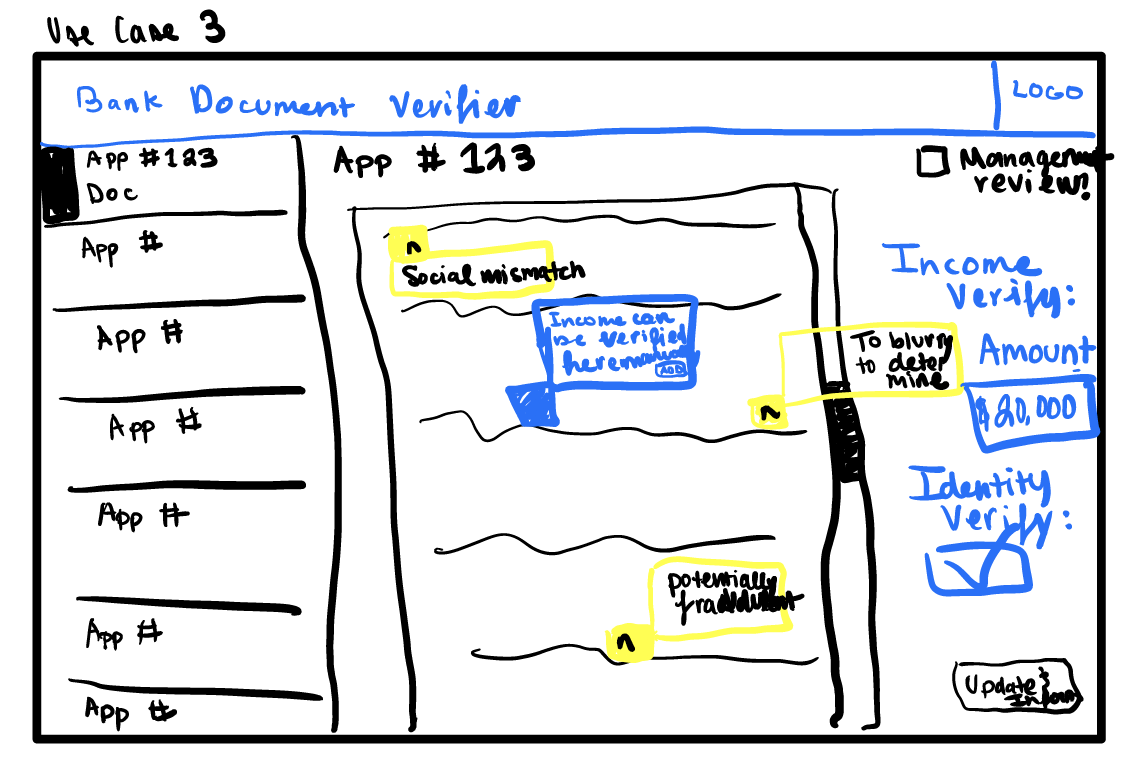 Use Case 3
Bank Document Verifier
LOGO
App #123
Doc
App #
App #
App #
App #
App #
App #
App # 123
Management
review?
n
Social mismatch
Income can
be verified
here
ADD
To blurry
to deter
mine
n
potentially
fraudulent
n
Income
Verify:
Amount
$20,000
Identity
Verify:
Update &
Inform